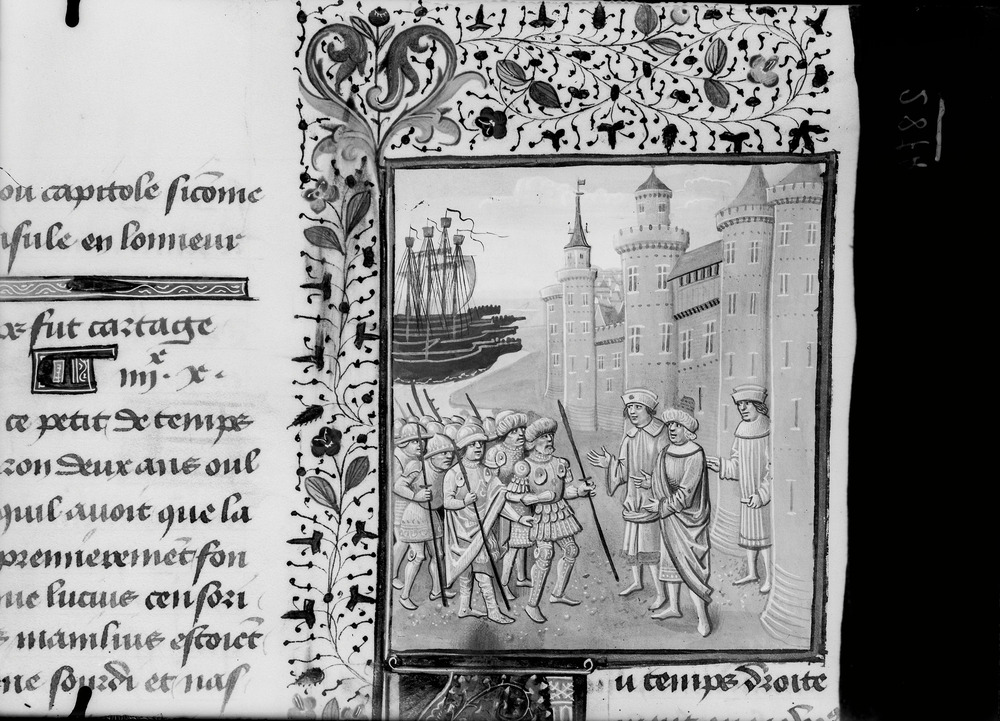 ou capitole sicõme
nsule en lonneur
x fut cartage
iiij. x.
x
ce petit de temps
ron deux ans oul
quil avoit que la
premieremẽt son
ue lucius censori
s manilius estoiẽt
ne sourdi et nas
u temps droite